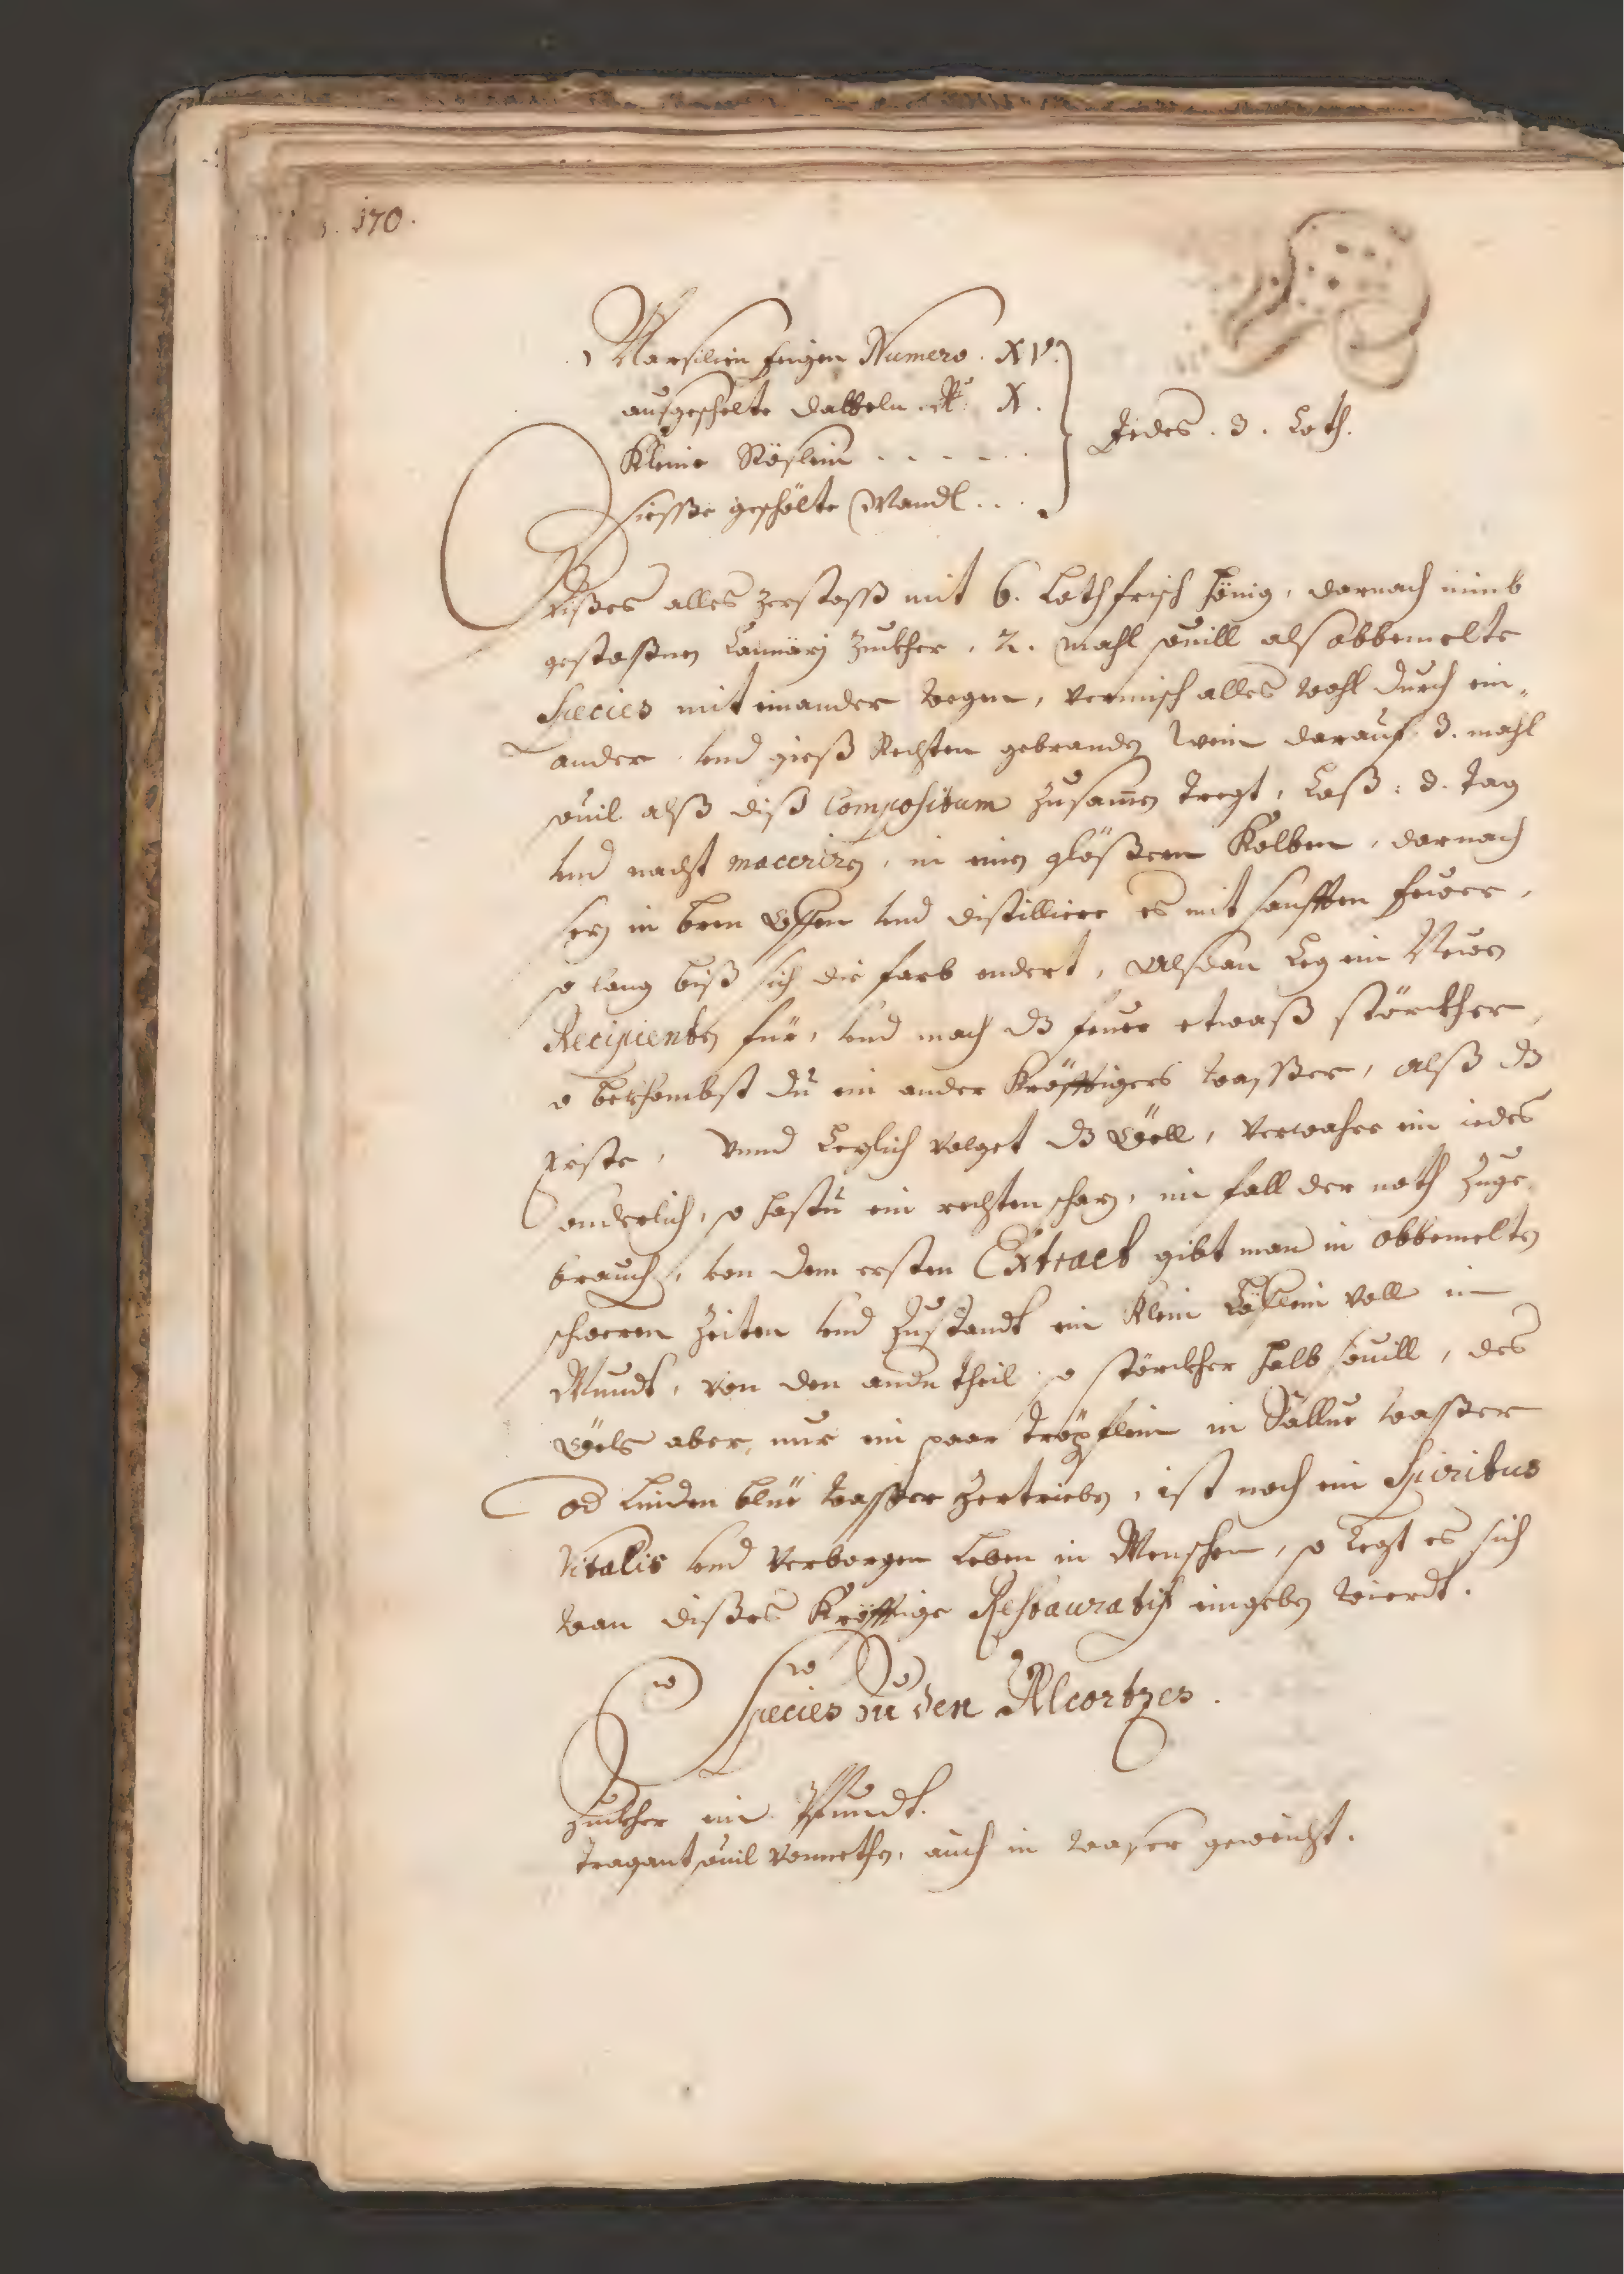 170.
Marsilien feigen Numero. XV.
ausgeschelte datteln. N: X.
Kleine Röslein . . . . .
siesse geschölte Mandl . . .
Jedes. 3. Loth.
Disses alles zerstoss mit 6. Loth frisch hönig, darnach nimb
gestossnen Cannarj Zuckher, 2. mahl souill als obbemelte
Species mit einander wegen, vermisch alles wohl durch ein,
ander vnd giess Rechten gebranden wein darauf 3. mahl
souil alß diß Compositum Zusamen tregt, Laß: 3. Tag
vnd nacht maceriren, in ein gläßern Kolben, darnach
sez in bren Offen vnd distilliere es mit sanfften feuer,
so lang biß sich die farb endert, Alsdan Leg ein Neuen
Recipienten für, vnd mach dz feuer etwaß störckher,
so bekhombst du ein ander Kräfftigers wasser, alß dz
Erste, Vnnd Lezlich volget dz Öell, verwahre ein iedes
sonderlich, so hastu ein rechten schaz, im fall der noth Zuge
brauchen, von dem ersten Extract gibt man in obbemelten
schweren Zeiten vnd Zustandt ein Klein Löflein voll in
Mundt, von den andn theil so störckher halb souill, des
Öels aber, nur ein paar tröpflein in wasser
od Linden blüe wasser zertrieben, ist noch ein Spiritus
Vitalis vnd verborgen Leben in Menschen, so regt es sich
wan disses Kräfftige Restauratif eingeben wierdt.
Species zu den Alcortzes.
Zuckher ein Pfundt.
Tragant souil vonnethen, auch in wasser geweicht.